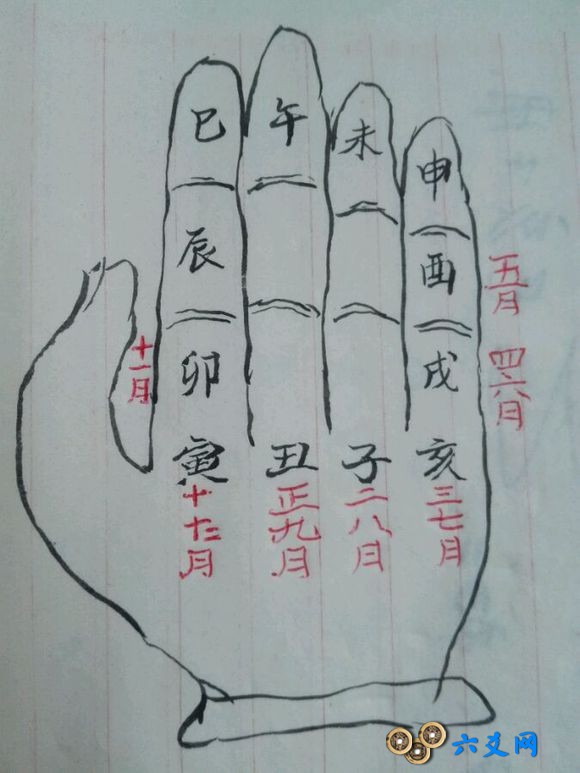 巳 午 未 申
辰 酉
五月
十一月
卯 戌
四六月
寅 丑 子 亥
十十二月 正九月 二八月 三七月
六爻网